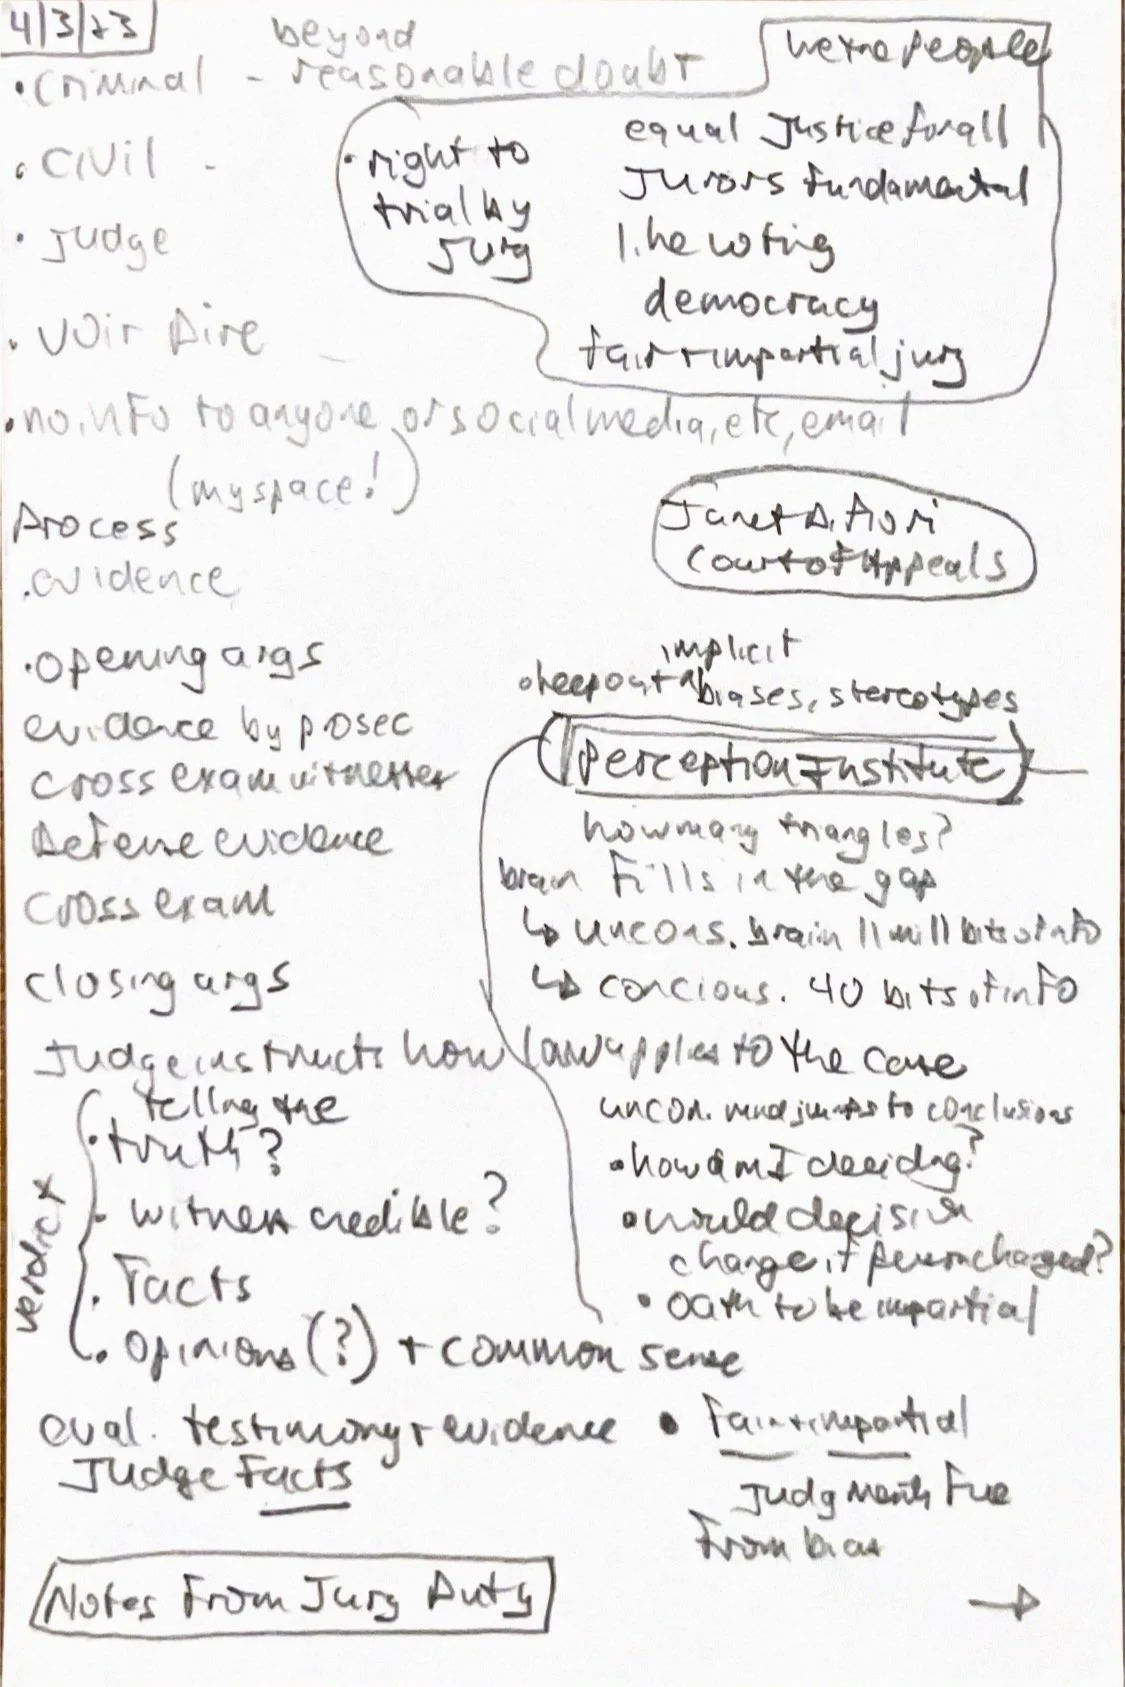 4/3/23
beyond
• Criminal - reasonable doubt
• Civil -
• Judge
• Voir Dire
• no info to anyone or social media, etc, email
(myspace!)
we the people
• right to
trial by
jury
equal Justice for all
Jurors fundamental
like voting
democracy
fair + impartial jury
Process
. evidence
• opening args
evidence by prosec
cross exam witnesses
Defense evidence
cross exam
closing args
Judge instructs how law applies to the case
verdict
• telling the
truth?
• witness credible?
• Facts
• opinions (?) + common sense
eval. testimony + evidence
Judge Facts
Janet D. Fiori
Court of Appeals
implicit
• keep out ^ biases, stereotypes
Perception Institute
how many triangles?
brain fills in the gap
↳ uncons. brain 11 mill bits of info
↳ concious. 40 bits of info
uncon. mind jumps to conclusions
• how am I deciding?
• would decision
change if person changed?
• Oath to be impartial
• Fair + impartial
Judgments free
From bias
→
Notes From Jury Duty